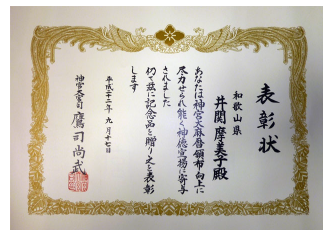 表彰状
和歌山県
井関摩美子殿
あなたは神宮大麻暦頒布向上に
尽力せられ能く神徳宣揚に寄与
されました
仍て茲に記念品を贈り之を表彰
します
平成二十二年九月十七日
神宮大宮司 鷹司尚武